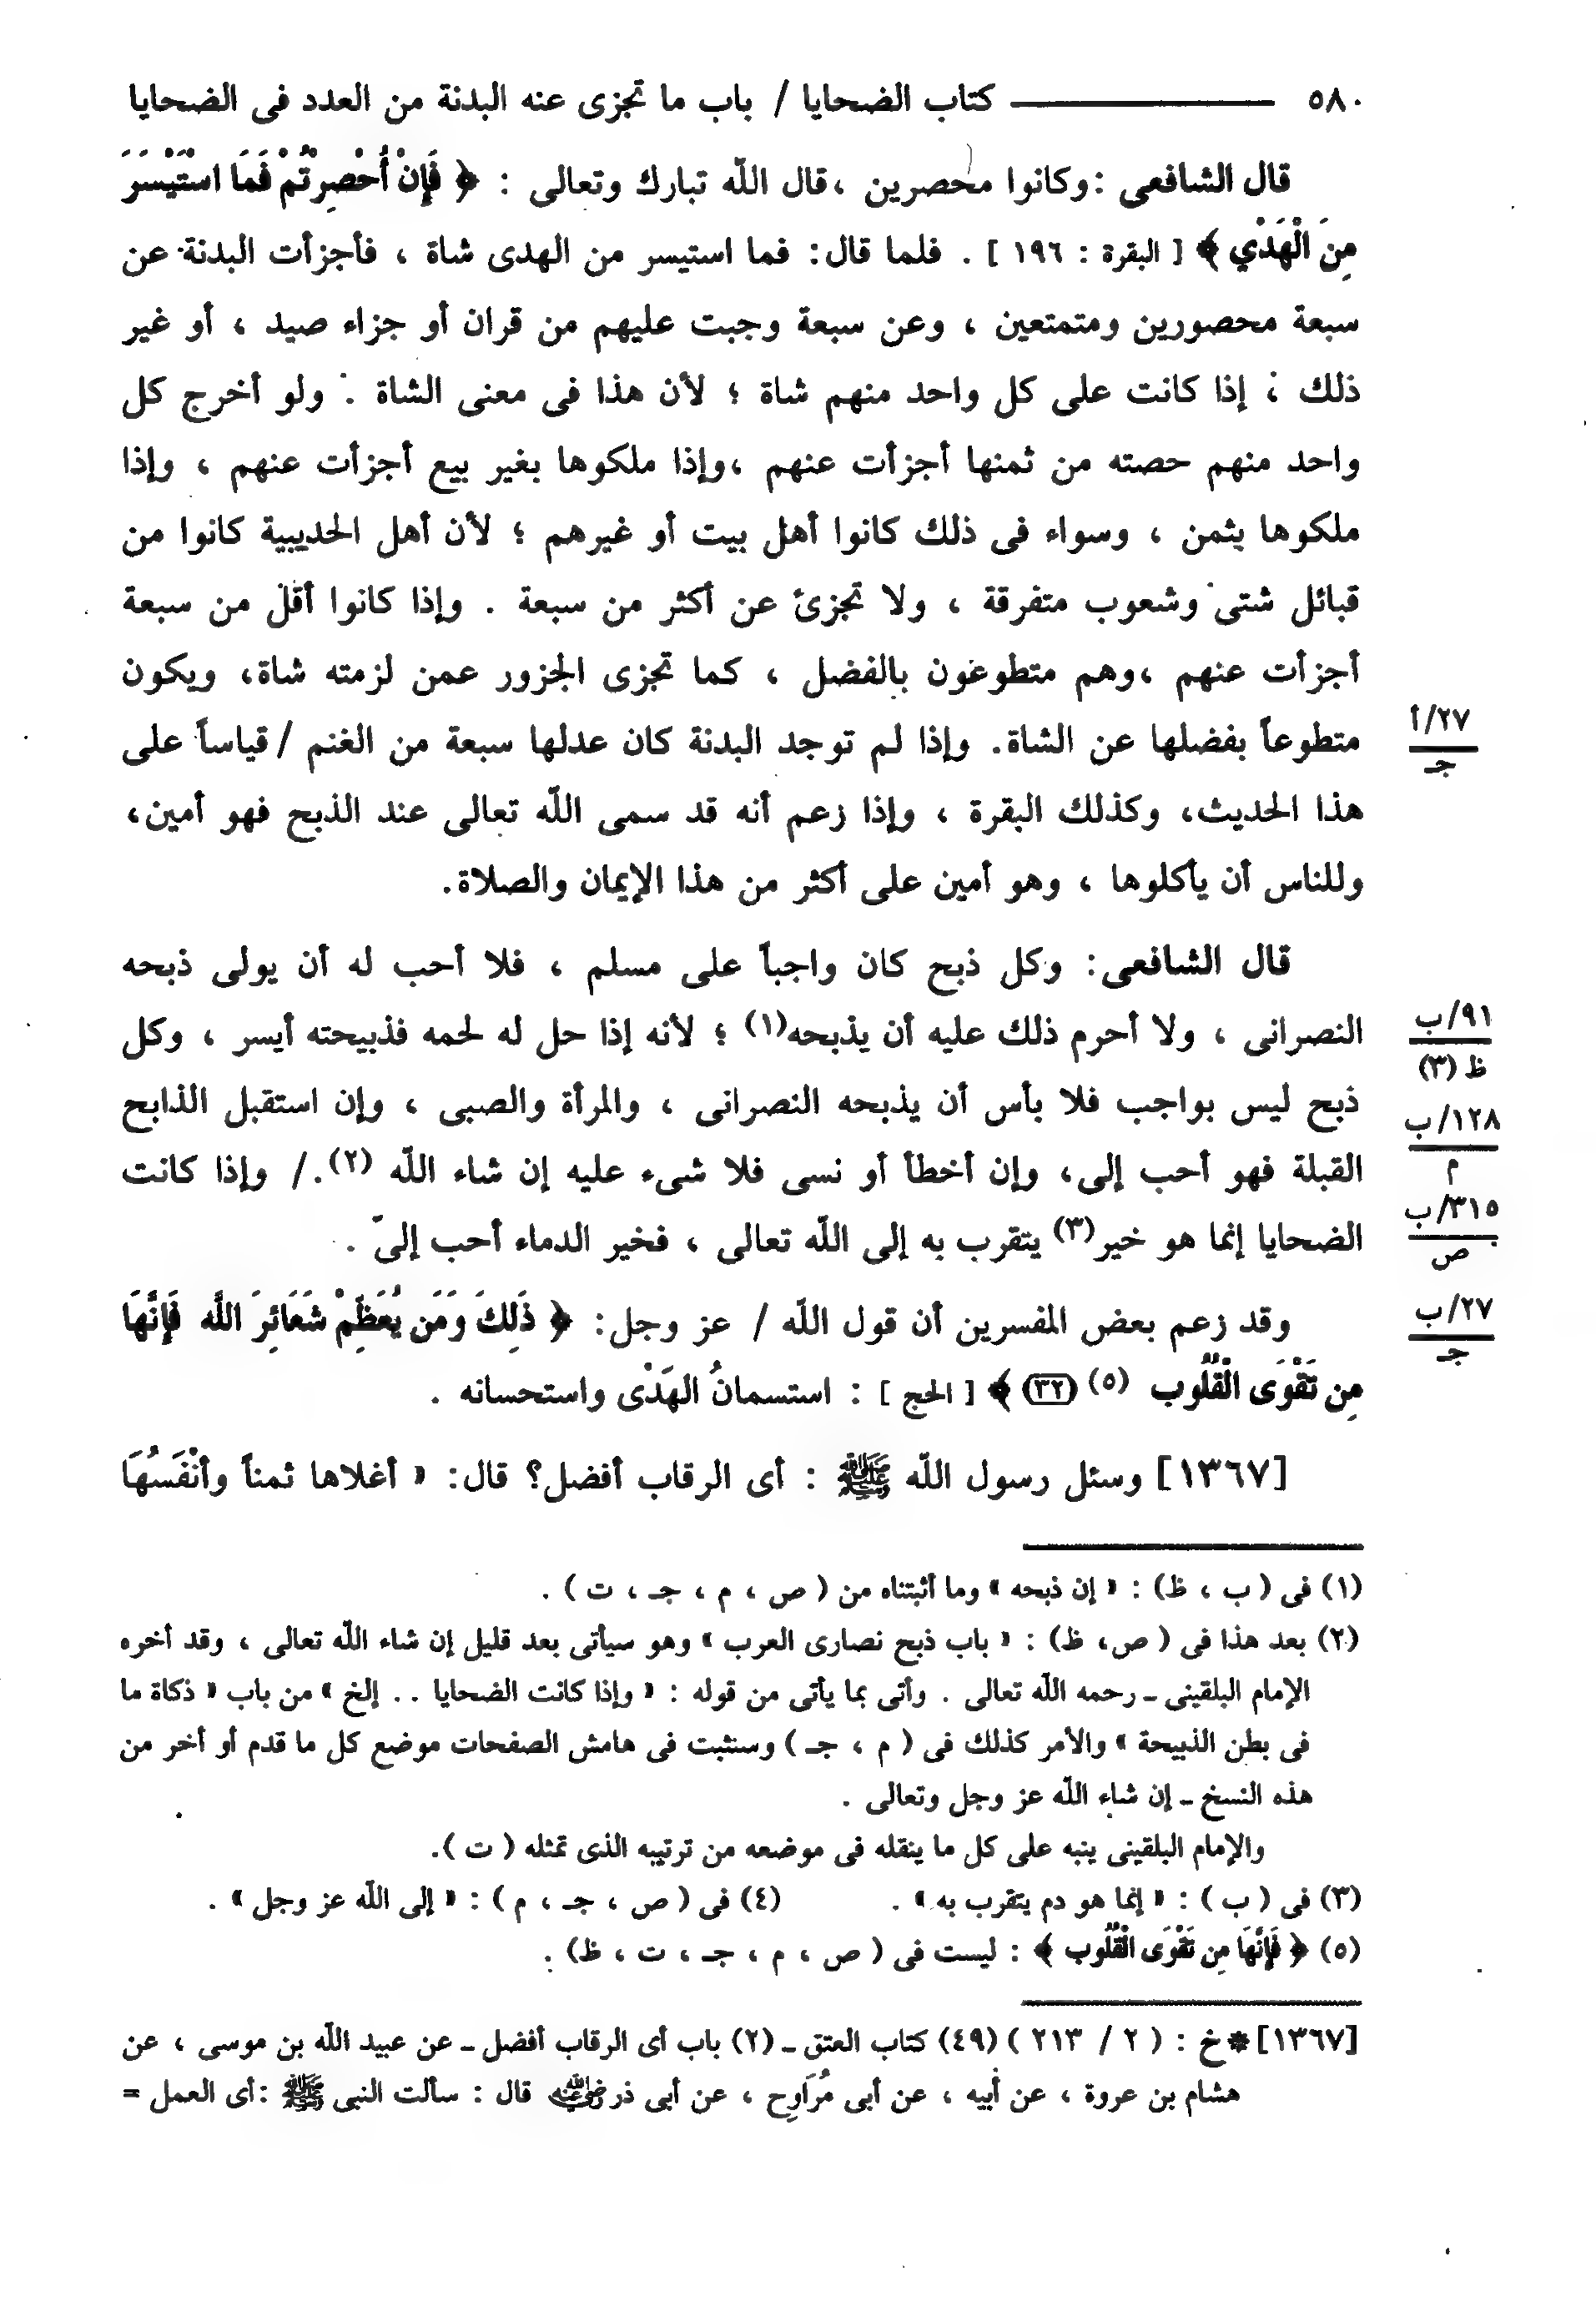 ٥٨٠ ــــــــــــ كتاب الضحايا / باب ما تجزى عنه البدنة من العدد فى الضحايا
قال الشافعى : وكانوا محصرين ، قال اللّه تبارك وتعالى : ﴿ فَإِنْ أُحْصِرْتُمْ فَمَا اسْتَيْسَرَ
مِنَ الْهَدْيِ ﴾ [ البقرة : ١٩٦ ] . فلما قال: فما استيسر من الهدى شاة ، فأجزأت البدنة عن
سبعة محصورين ومتمتعين ، وعن سبعة وجبت عليهم من قران أو جزاء صيد ، أو غير
ذلك ؛ إذا كانت على كل واحد منهم شاة ؛ لأن هذا فى معنى الشاة . ولو أخرج كل
واحد منهم حصته من ثمنها أجزأت عنهم ،وإذا ملكوها بغير بيع أجزأت عنهم ، وإذا
ملكوها بثمن ، وسواء فى ذلك كانوا أهل بيت أو غيرهم ؛ لأن أهل الحديبية كانوا من
قبائل شتى وشعوب متفرقة ، ولا تجزئ عن أكثر من سبعة . وإذا كانوا أقل من سبعة
أجزأت عنهم ،وهم متطوعون بالفضل ، كما تجزى الجزور عمن لزمته شاة، ويكون
متطوعاً بفضلها عن الشاة. وإذا لم توجد البدنة كان عدلها سبعة من الغنم / قياساً على
٢٧/أ
جـ
هذا الحديث، وكذلك البقرة ، وإذا زعم أنه قد سمى اللّه تعالى عند الذبح فهو أمين،
وللناس أن يأكلوها ، وهو أمين على أكثر من هذا الإيمان والصلاة.
قال الشافعى: وكل ذبح كان واجباً على مسلم ، فلا أحب له أن يولى ذبحه
النصرانى ، ولا أحرم ذلك عليه أن يذبحه(١) ؛ لأنه إذا حل له لحمه فذبيحته أيسر ، وكل
٩١/ب
ظ (٣)
ذبح ليس بواجب فلا بأس أن يذبحه النصرانى ، والمرأة والصبى ، وإن استقبل الذابح
١٢٨/ب
م
القبلة فهو أحب إلى، وإن أخطأ أو نسى فلا شىء عليه إن شاء اللّه (٢)./ وإذا كانت
٣١٥/ب
ص
الضحايا إنما هو خير(٣) يتقرب به إلى اللّه تعالى ، فخير الدماء أحب إلىّ .
وقد زعم بعض المفسرين أن قول اللّه / عز وجل: ﴿ ذَلِكَ وَمَن يُعَظِّمْ شَعَائِرَ اللَّه فَإِنَّهَا
٢٧/ب
جـ
مِن تَقْوَى الْقُلُوب (٥) (٣٢) ﴾ [ الحج ] : استسمانُ الهَدْى واستحسانه .
[١٣٦٧] وسئل رسول اللّه ﷺ : أى الرقاب أفضل؟ قال: « أغلاها ثمناً وأنْفَسُهَا
(١) فى ( ب ، ظ) : « إن ذبحه » وما أثبتناه من ( ص ، م ، جـ ، ت ) .
(٢) بعد هذا فى ( ص، ظ) : « باب ذبح نصارى العرب » وهو سيأتى بعد قليل إن شاء اللّه تعالى ، وقد أخره
الإمام البلقينى ـ رحمه اللّه تعالى . وأتى بما يأتى من قوله : « وإذا كانت الضحايا .. إلخ » من باب « ذكاة ما
فى بطن الذبيحة » والأمر كذلك فى ( م ، جـ ) وسنثبت فى هامش الصفحات موضع كل ما قدم أو أخر من
هذه النسخ ـ إن شاء اللّه عز وجل وتعالى .
والإمام البلقينى ينبه على كل ما ينقله فى موضعه من ترتيبه الذى تمثله ( ت ).
(٣) فى ( ب ) : « إنما هو دم يتقرب به » . (٤) فى ( ص ، جـ ، م ) : « إلى اللّه عز وجل » .
(٥) ﴿ فَإِنَّهَا مِن تَقْوَى الْقُلُوب ﴾ : ليست فى ( ص ، م ، جـ ، ت ، ظ) .
[١٣٦٧]* خ : ( ٢ / ٢١٣ ) (٤٩) كتاب العتق ـ (٢) باب أى الرقاب أفضل ـ عن عبيد اللّه بن موسى ، عن
هشام بن عروة ، عن أبيه ، عن أبى مُرَاوِح ، عن أبى ذر رضي الله عنه قال : سألت النبى ﷺ :أى العمل =